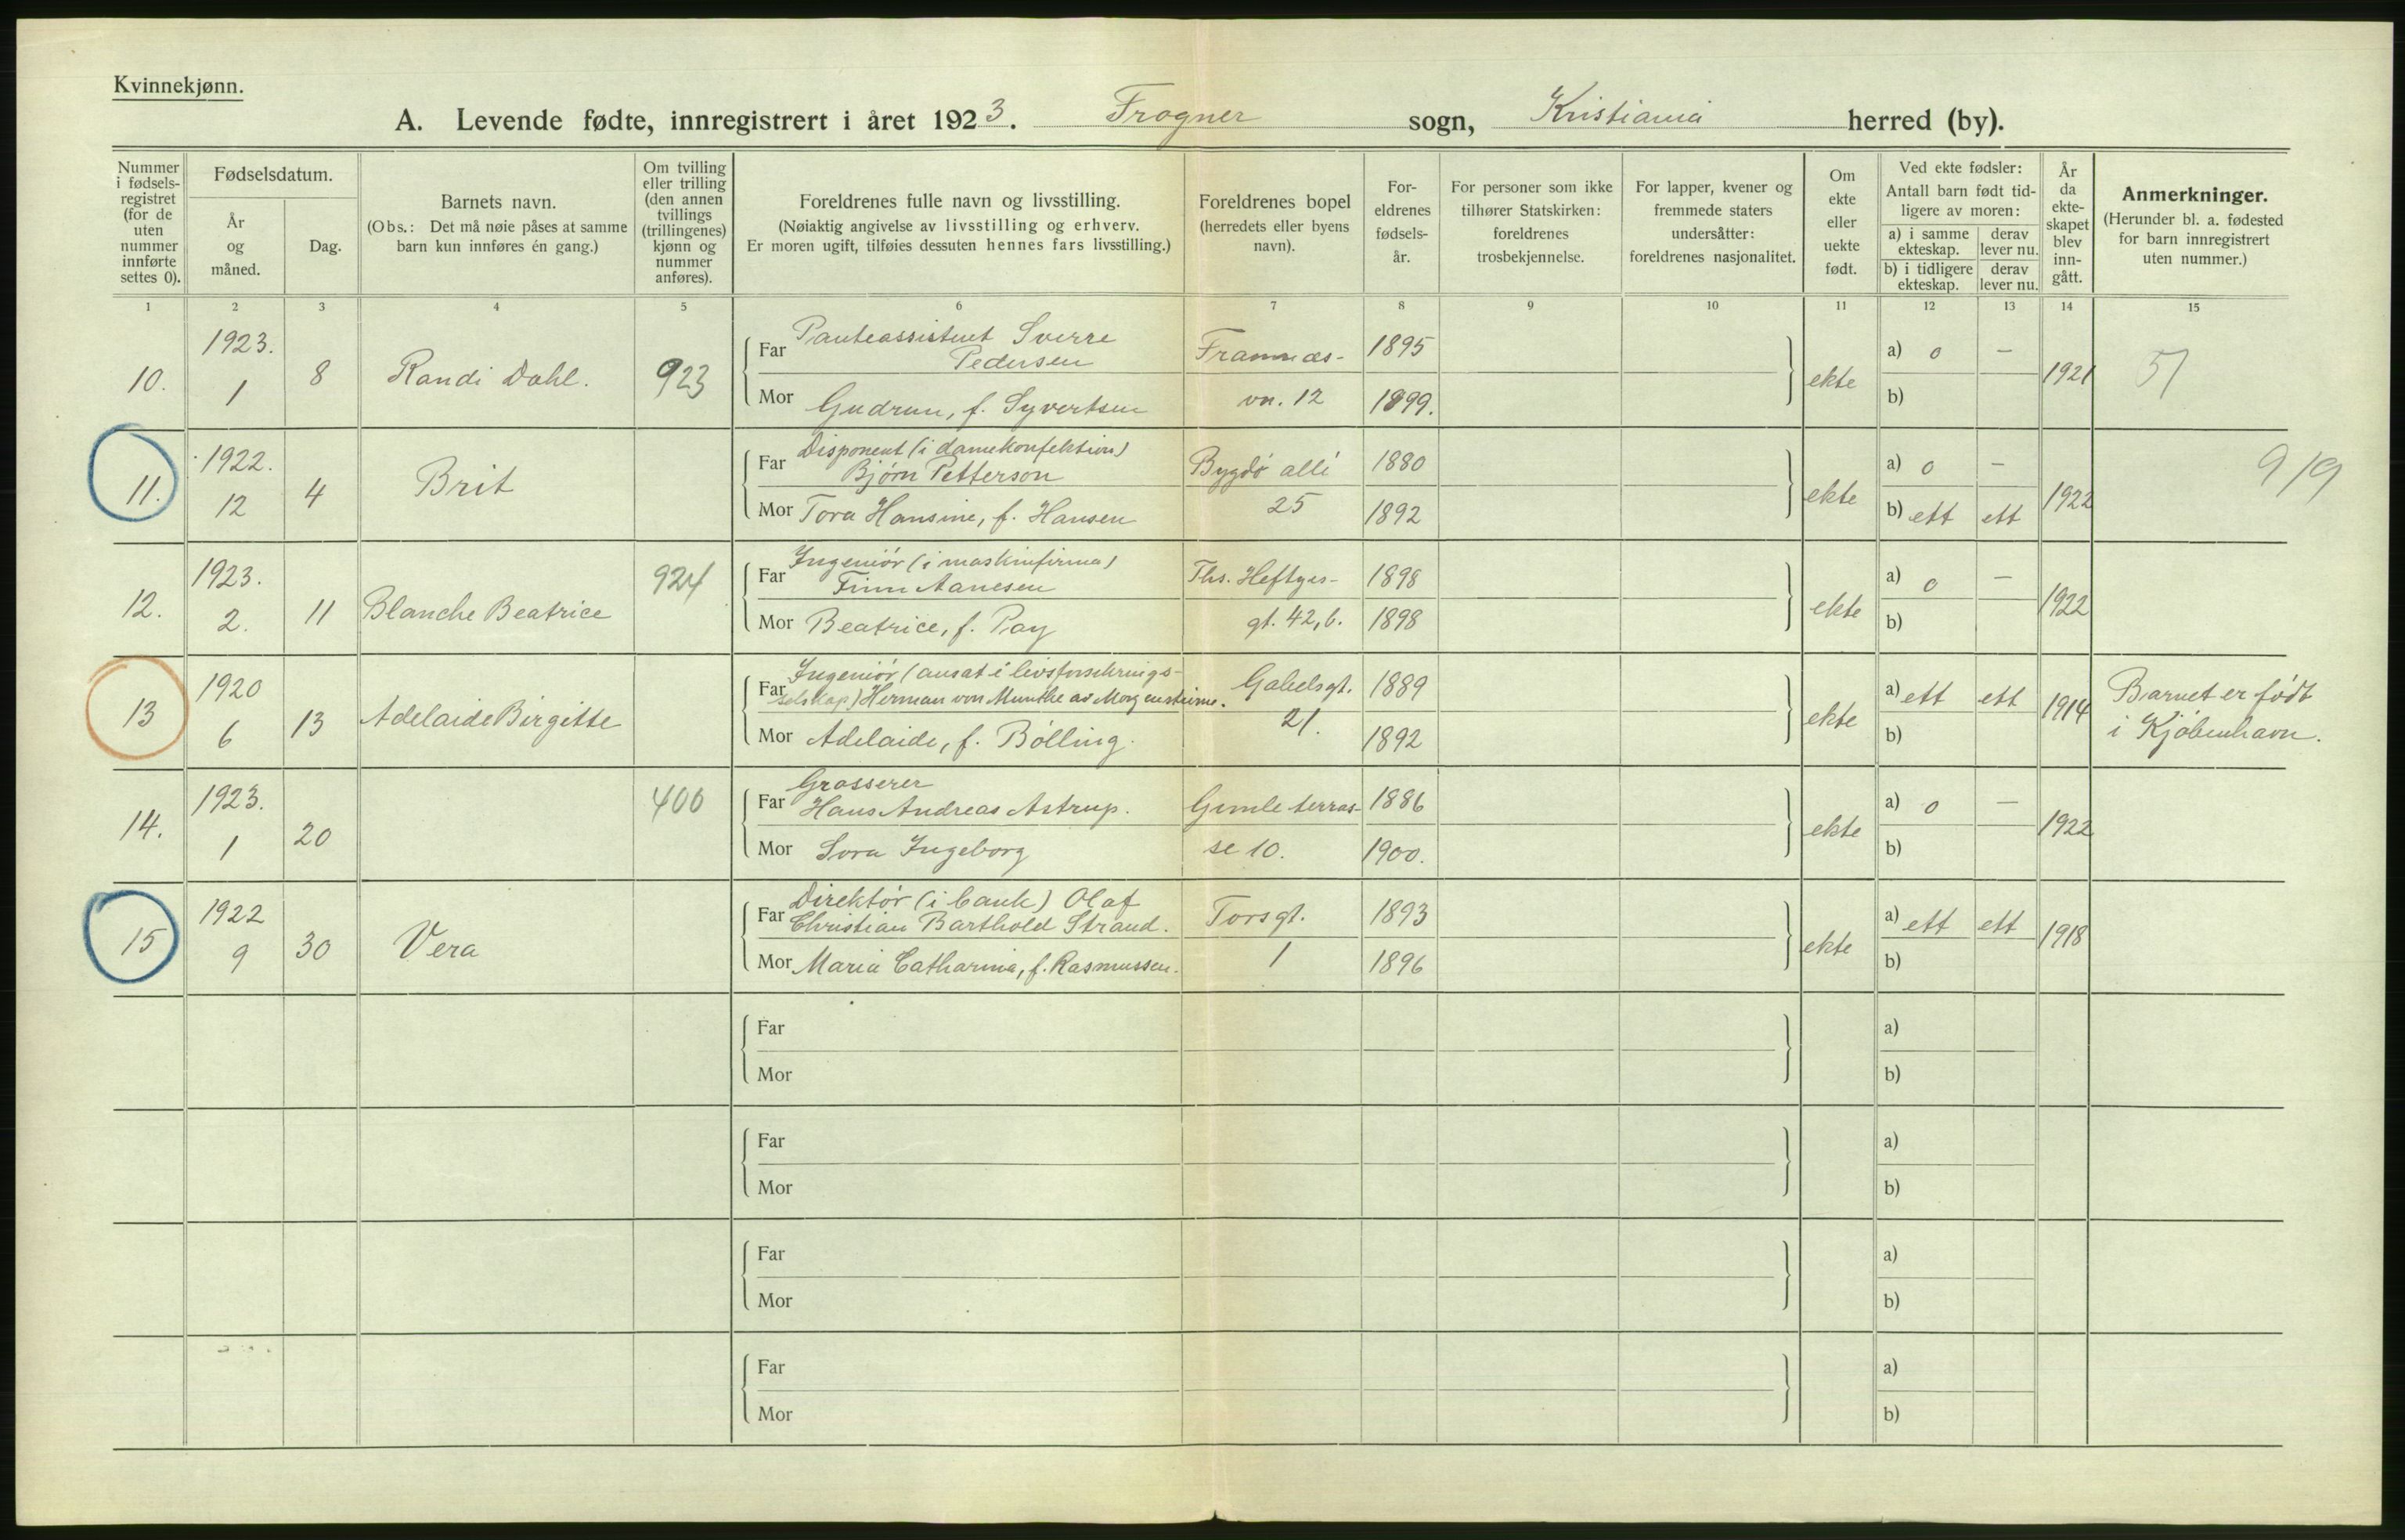 Kvinnekjønn.
A. Levende fødte, innregistrert i året 1923. Frogner sogn, Kristiania herred (by).
Nummer i fødselsregistret (for de uten nummer innførte settes 0).
Fødselsdatum.
År og måned.
Dag.
Barnets navn.
(Obs.: Det må nøie påses at samme barn kun innføres én gang.)
Om tvilling eller trilling (den annen tvillings (trillingenes) kjønn og nummer anføres).
Foreldrenes fulle navn og livsstilling.
(Nøiaktig angivelse av livsstilling og erhverv.
Er moren ugift, tilføies dessuten hennes fars livsstilling.)
Foreldrenes bopel
(herredets eller byens navn).
Foreldrenes fødselsår.
For personer som ikke tilhører Statskirken: foreldrenes trosbekjennelse.
For lapper, kvener og fremmede staters undersåtter: foreldrenes nasjonalitet.
Om ekte eller uekte født.
Ved ekte fødsler:
Antall barn født tidligere av moren:
a) i samme ekteskap. derav lever nu.
b) i tidligere ekteskap. derav lever nu.
År da ekteskapet blev inngått.
Anmerkninger.
(Herunder bl. a. fødested for barn innregistrert uten nummer.)
1 2 3 4 5 6 7 8 9 10 11 12 13 14 15
10. 1923. 1 8 Randi Dahl. 923
Far Panteassistent Sverre Pedersen Framnæs- 1895
Mor Gudrun, f. Syvertsen vn. 12 1899.
ekte a) 0 — b) 1921 51
11. 1922. 12 4 Brit
Far Disponent (i damekonfektion) Bjørn Petterson Bygdö allé 1880
Mor Tora Hansine, f. Hansen 25 1892
ekte a) 0 — b) ett ett 1922 919
12. 1923. 2. 11 Blanche Beatrice 924
Far Ingeniör (i maskinfirma) Finn Aanesen Ths. Heftyes- 1898
Mor Beatrice, f. Pay gt. 42, b. 1898
ekte a) 0 — b) 1922
13 1920 6 13 Adelaide Birgitte
Far Ingeniör (ansat i livsforsikrings-
selskap) Herman von Munthe av Morgenstierne. Gabelsgt. 1889
Mor Adelaide, f. Bölling. 21. 1892
ekte a) ett ett b) 1914 Barnet er födt
i Kjöbenhavn.
14. 1923. 1 20 400
Far Grosserer Hans Andreas Astrup. Gimle terras- 1886
Mor Ingeborg se 10. 1900.
ekte a) 0 — b) 1922
15 1922 9 30 Vera
Far Direktör (i bank) Olaf
Christian Barthold Strand. Torsgt. 1893
Mor Maria Catharina, f. Rasmussen. 1 1896
ekte a) ett ett b) 1918
Far a)
Mor b)
Far a)
Mor b)
Far a)
Mor b)
Far a)
Mor b)